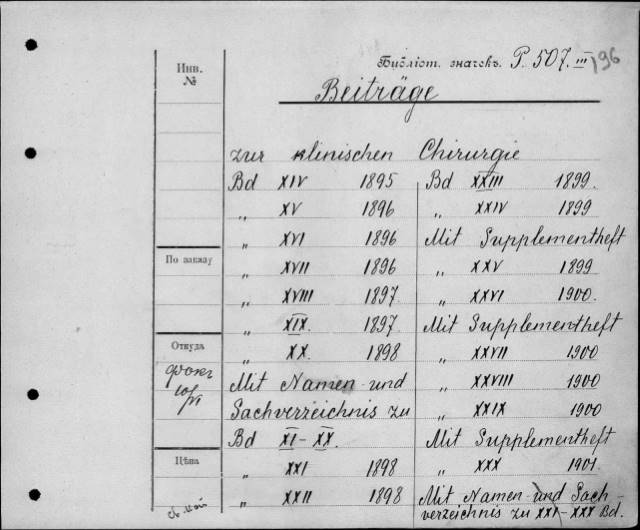 Библіот. значекъ P. 507. III
196
Инв.
№
Beiträge
zur klinischen Chirurgie
Bd XIV 1895
„ XV 1896
„ XVI 1896
„ XVII 1896
„ XVIII 1897.
„ XIX. 1897.
„ XX. 1898
Mit Namen und
Sachverzeichnis zu
Bd XI–XX.
„ XXI 1898
„ XXII 1898
Bd XXIII 1899.
„ XXIV 1899
Mit Supplementheft
„ XXV 1899
„ XXVI 1900.
Mit Supplementheft
„ XXVII 1900
„ XXVIII 1900
„ XXIX 1900
Mit Supplementheft
„ XXX 1901.
Mit Namen und Sach-
verzeichnis zu XXI–XXX Bd.
По заказу
Откуда
Цѣна